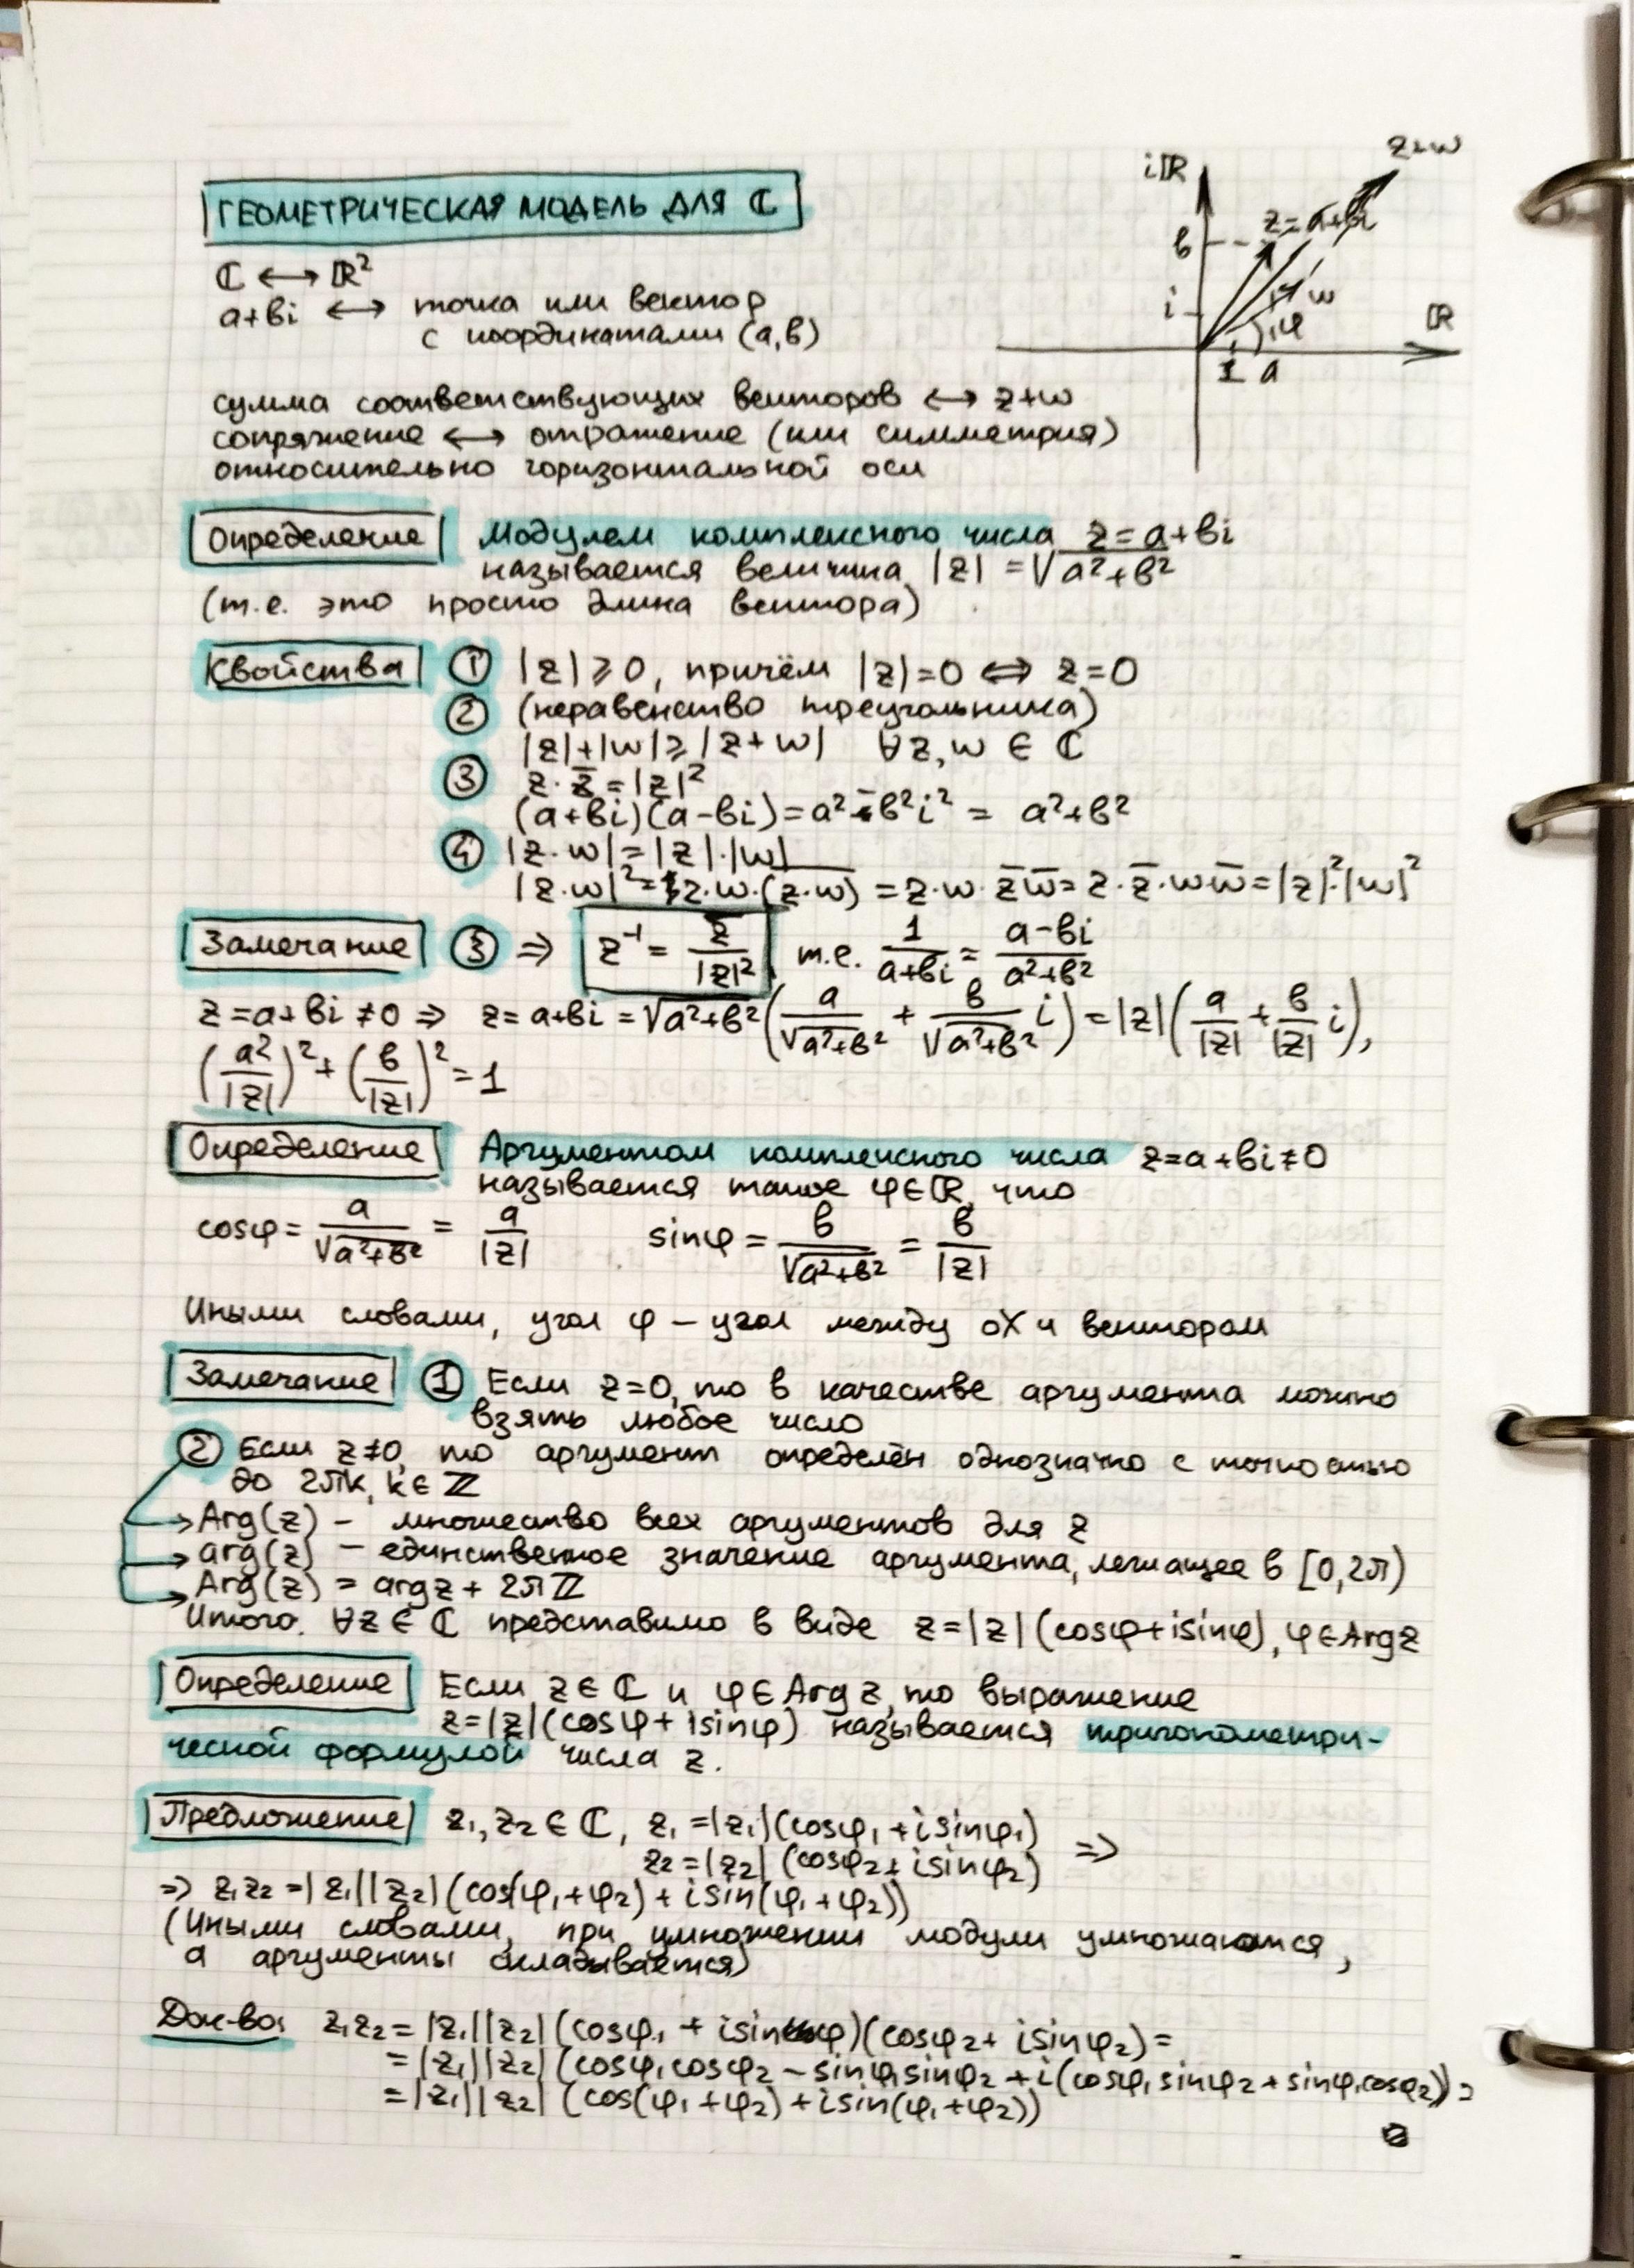 ГЕОМЕТРИЧЕСКАЯ МОДЕЛЬ ДЛЯ ℂ
iℝ
z+w
z=a+bi
b
i
w
φ
ℝ
1 a
ℂ ⟷ ℝ²
a+bi ⟷ точка или вектор
с координатами (a,b)
сумма соответствующих векторов ⟷ z+w
сопряжение ⟷ отражение (или симметрия)
относительно горизонтальной оси
Определение Модулем комплексного числа z=a+bi
называется величина |z| = √(a²+b²)
(т.е. это просто длина вектора)
Свойства ① |z| ⩾ 0, причём |z|=0 ⟺ z=0
② (неравенство треугольника)
|z|+|w| ⩾ |z+w| ∀z,w ∈ ℂ
③ z·z̅ = |z|²
(a+bi)(a-bi) = a²-b²i² = a²+b²
④ |z·w| = |z|·|w|
|z·w|² = z·w·\overline{(z·w)} = z·w·z̅w̅ = z·z̅·w·w̅ = |z|²·|w|²
Замечание ③ ⇒ z⁻¹ = z̅/|z|² т.е. 1/(a+bi) = (a-bi)/(a²+b²)
z=a+bi≠0 ⇒ z=a+bi = √(a²+b²)(a/√(a²+b²) + b/√(a²+b²) i) = |z|(a/|z| + b/|z| i),
(a²/|z|)² + (b/|z|)² = 1
Определение Аргументом комплексного числа z=a+bi≠0
называется такое φ∈ℝ, что
cosφ = a/√(a²+b²) = a/|z| sinφ = b/√(a²+b²) = b/|z|
Иными словами, угол φ – угол между оХ и вектором
Замечание ① Если z=0, то в качестве аргумента можно
взять любое число
② Если z≠0, то аргумент определён однозначно с точностью
до 2πk, k∈ℤ
Arg(z) – множество всех аргументов для z
arg(z) – единственное значение аргумента, лежащее в [0,2π)
Arg(z) = argz + 2πℤ
Итого. ∀z∈ℂ представимо в виде z=|z|(cosφ+isinφ), φ∈Argz
Определение Если z∈ℂ и φ∈Argz, то выражение
z=|z|(cosφ+isinφ) называется тригонометри-
ческой формулой числа z.
Предложение z₁,z₂∈ℂ, z₁=|z₁|(cosφ₁+isinφ₁)
z₂=|z₂|(cosφ₂+isinφ₂) ⇒
⇒ z₁z₂ = |z₁||z₂|(cos(φ₁+φ₂)+isin(φ₁+φ₂))
(Иными словами, при умножении модули умножаются,
а аргументы складывается)
Док-во: z₁z₂ = |z₁||z₂|(cosφ₁ + isinφ)(cosφ₂+ isinφ₂) =
= |z₁||z₂|(cosφ₁cosφ₂ – sinφ₁sinφ₂ + i(cosφ₁sinφ₂+sinφ₁cosφ₂)) =
= |z₁||z₂|(cos(φ₁+φ₂)+isin(φ₁+φ₂))